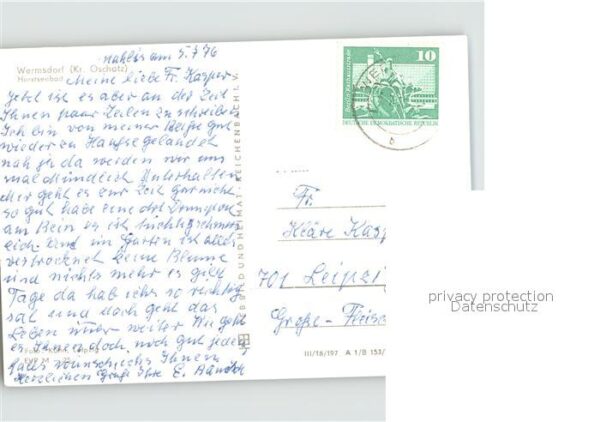 Mahlis am 5.7.76
Wermsdorf (Kr. Oschatz)
Horstseebad
Meine liebe Fr. Kasper
Jetzt ist es aber an der Zeit
Ihnen paar Zeilen zu schreiben
Ich bin von meiner Reise gut
wieder zu Hause gelandet
da werden wir uns
mal mündlich Unterhalten
Mir geht es zur Zeit garnicht
so gut habe eine
am Bein es ist
Und im Garten ist alles
vertrocknet keine Blume
und nichts mehr es gibt
Tage da hab ichs so richtig
sat und doch geht das
Leben immer weiter Wie geht
es Ihnen doch noch gut jeden
falls wünsch ichs Ihnen
Herzlichen Gruß Ihre E.
BILD UND HEIMAT · REICHENBACH I. V.
10
DEUTSCHE DEMOKRATISCHE REPUBLIK
Fr.
Kläre Kasp
701 Leipzi
Große-Fleisch
III/18/197 A 1/B 153/
privacy protection
Datenschutz